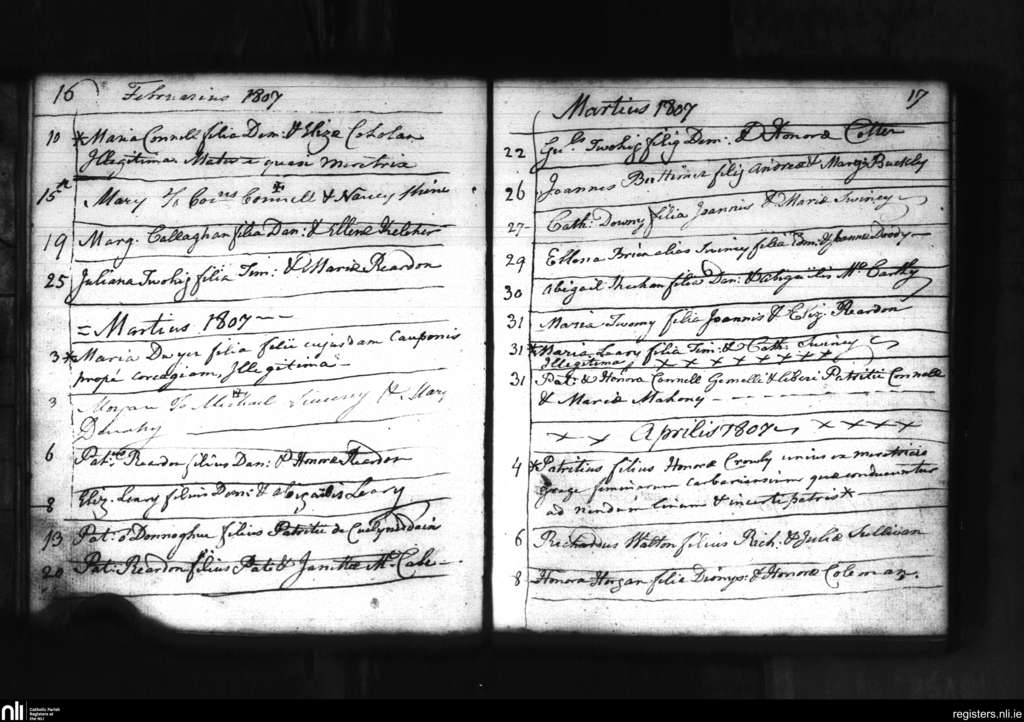 16 Februarius 1807
10 * Maria Connell filia Dan: & Elizæ Coholan
Illegitima Mater quasi meretrix
15 Mary To Cors Connell & Nancy
19 Marg. Callaghan filia Dan: & Ellenæ Keleher
25 Juliana Twohig filia Tim: & Mariæ Reardon
= Martius 1807 - -
3 * Maria Dwyer filia filiæ cujusdam Cauponis
propè Illegitima
3 Morgan To Michael Sweeny & Mary
6 Patcs Reardon filius Dan: & Honoræ Reardon
8 Eliz. Leary filius Dan: & abigailis Leary
13 Pat: o Donnoghue filius Patritii de
20 Pat: Reardon filius Pat & Mc Cabe -
Martius 1807 17
22 Guls Twohig filig Dan: & Honoræ Cotter
26 Joannes filij Andreæ & Marg: Buckley
27 Cath: Downy filia Joannis & Mariæ Swiney
29 Ellena Brien alias Swiney filia Edm: & Joannæ Doody -
30 Abigail Sheehan filia Dan: & abigailis Mc Carthy
31 Maria Twomy filia Joannis & Eliz: Reardon
31 * Maria Leary filia Tim: & Cath: Swiney
Illegitima x x x x x x x
31 Pat: & Honora Connell Gemelli & liberi Patritii Connell
& Mariæ Mahony - - - - - - -
x x Aprilis 1807 x x x x
4 * Patritius filius Honoræ Crowly unius ex meretricis
grege feminarum quæ conducuntur
ad linum & incerti patris *
6 Richardus Walton filius Rich: & Juliæ Sullivan
8 Honora Horgan filia Dionys: & Honoræ Coleman.
nli Catholic Parish
Registers at
the NLI
registers.nli.ie